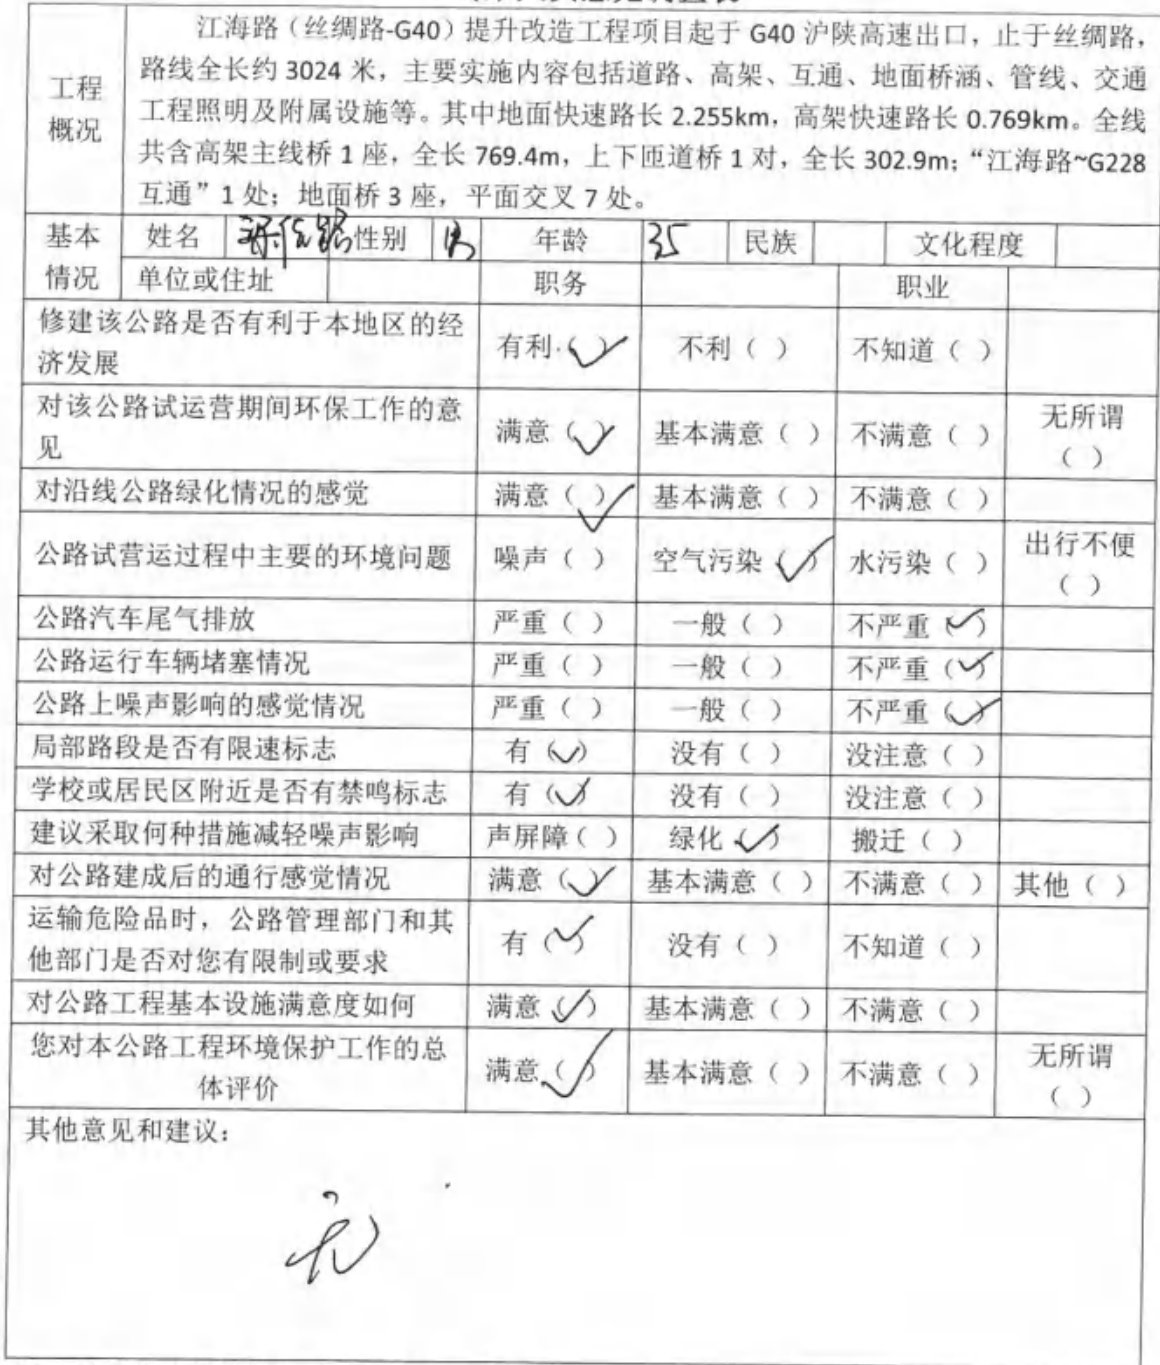 江海路（丝绸路-G40）提升改造工程项目起于 G40 沪陕高速出口，止于丝绸路，
路线全长约 3024 米，主要实施内容包括道路、高架、互通、地面桥涵、管线、交通
工程照明及附属设施等。其中地面快速路长 2.255km，高架快速路长 0.769km。全线
共含高架主线桥 1 座，全长 769.4m，上下匝道桥 1 对，全长 302.9m；“江海路~G228
互通”1 处；地面桥 3 座，平面交叉 7 处。
工程
概况
基本
情况
姓名 性别 男 年龄 35 民族 文化程度
单位或住址 职务 职业
修建该公路是否有利于本地区的经
济发展
有利（✓） 不利（ ） 不知道（ ）
对该公路试运营期间环保工作的意
见
满意（✓） 基本满意（ ） 不满意（ ） 无所谓
（ ）
对沿线公路绿化情况的感觉 满意（✓） 基本满意（ ） 不满意（ ）
公路试营运过程中主要的环境问题 噪声（ ） 空气污染（✓） 水污染（ ） 出行不便
（ ）
公路汽车尾气排放 严重（ ） 一般（ ） 不严重（✓）
公路运行车辆堵塞情况 严重（ ） 一般（ ） 不严重（✓）
公路上噪声影响的感觉情况 严重（ ） 一般（ ） 不严重（✓）
局部路段是否有限速标志 有（✓） 没有（ ） 没注意（ ）
学校或居民区附近是否有禁鸣标志 有（✓） 没有（ ） 没注意（ ）
建议采取何种措施减轻噪声影响 声屏障（ ） 绿化（✓） 搬迁（ ）
对公路建成后的通行感觉情况 满意（✓） 基本满意（ ） 不满意（ ） 其他（ ）
运输危险品时，公路管理部门和其
他部门是否对您有限制或要求
有（✓） 没有（ ） 不知道（ ）
对公路工程基本设施满意度如何 满意（✓） 基本满意（ ） 不满意（ ）
您对本公路工程环境保护工作的总
体评价
满意（✓） 基本满意（ ） 不满意（ ） 无所谓
（ ）
其他意见和建议：
无